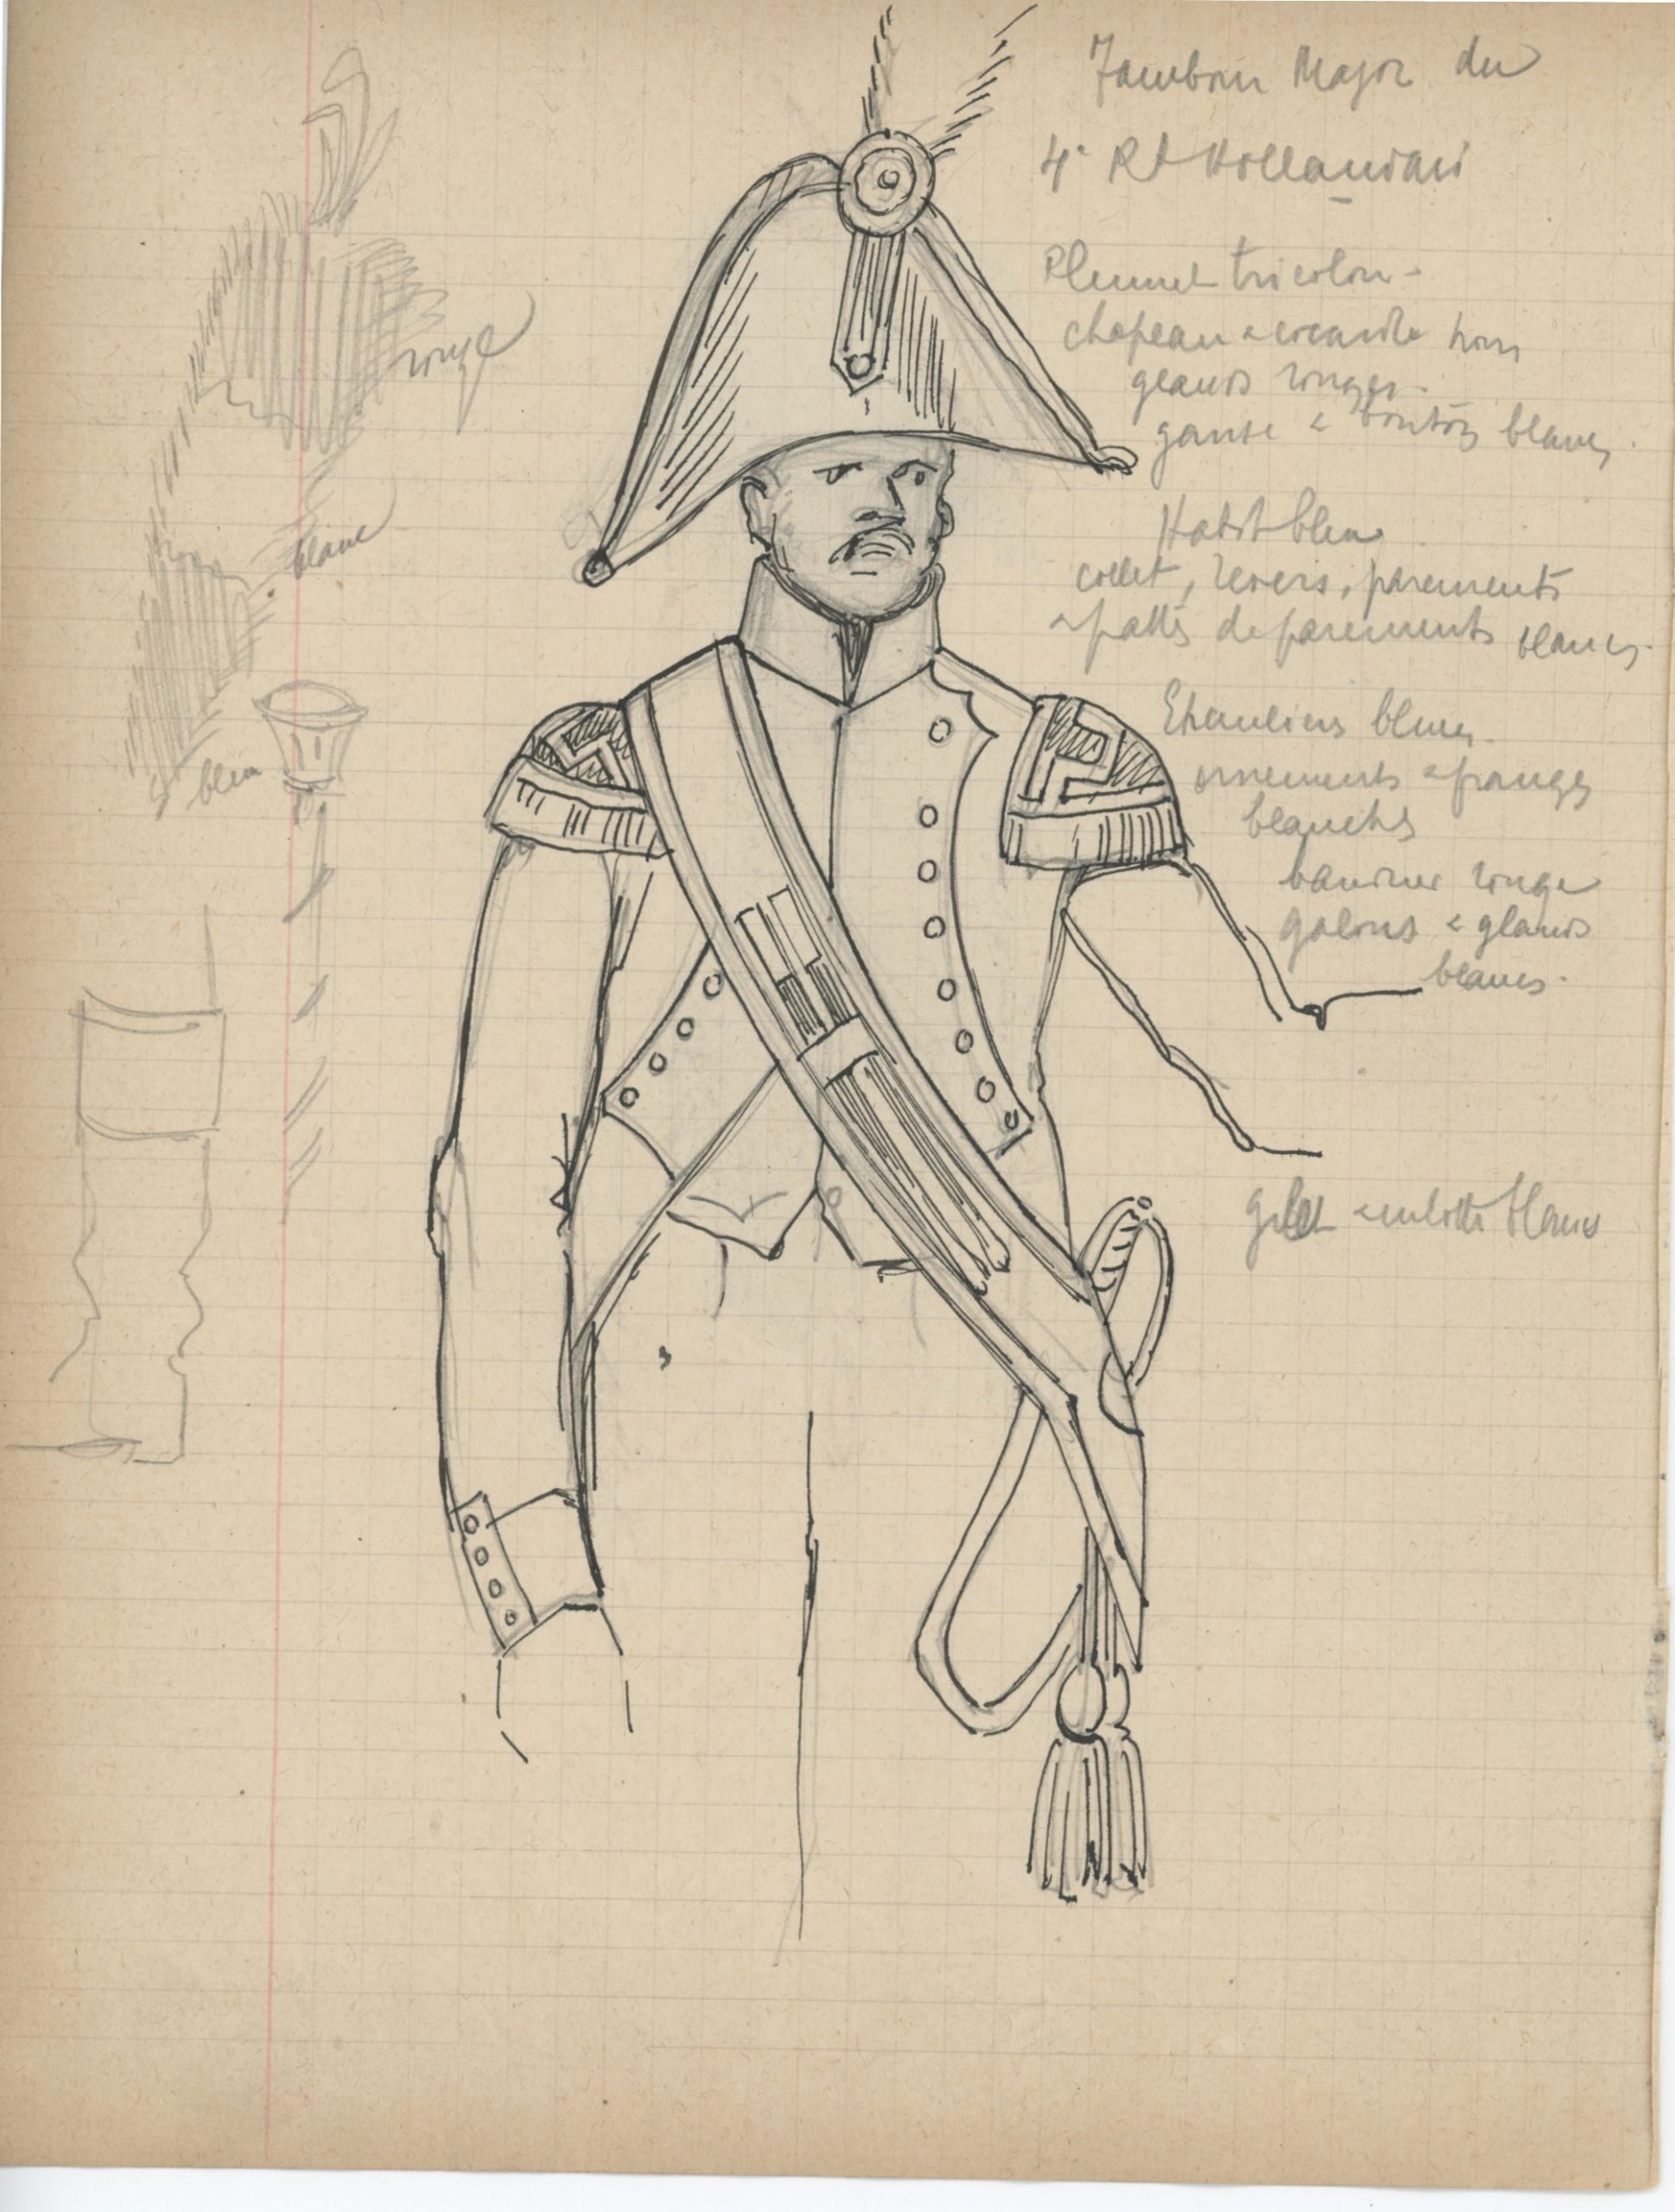 Tambour Major du
4e Rt Hollandais
Plumet tricolore -
chapeau & cocarde noirs
glands rouges -
ganse & boutons blancs.
Habit bleu
collet, revers, parements
& pattes de parements blancs.
Epaulières bleues
ornements & franges
blanches
baudrier rouge
galons & glands
blancs.
gilet & culotte blancs
rouge
blanc
bleu